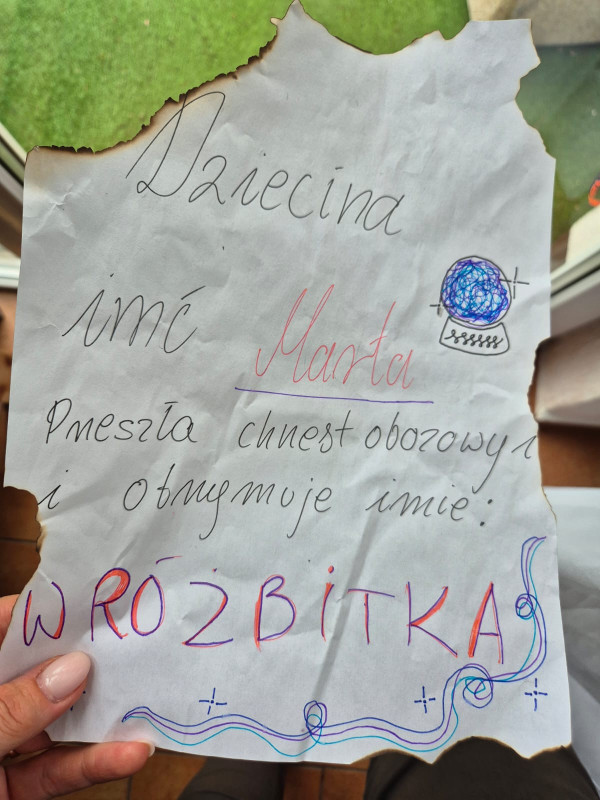 Dziecina
imć Marta
Przeszła chrzest obozowy
i otrzymuje imię:
WRÓŻBITKA